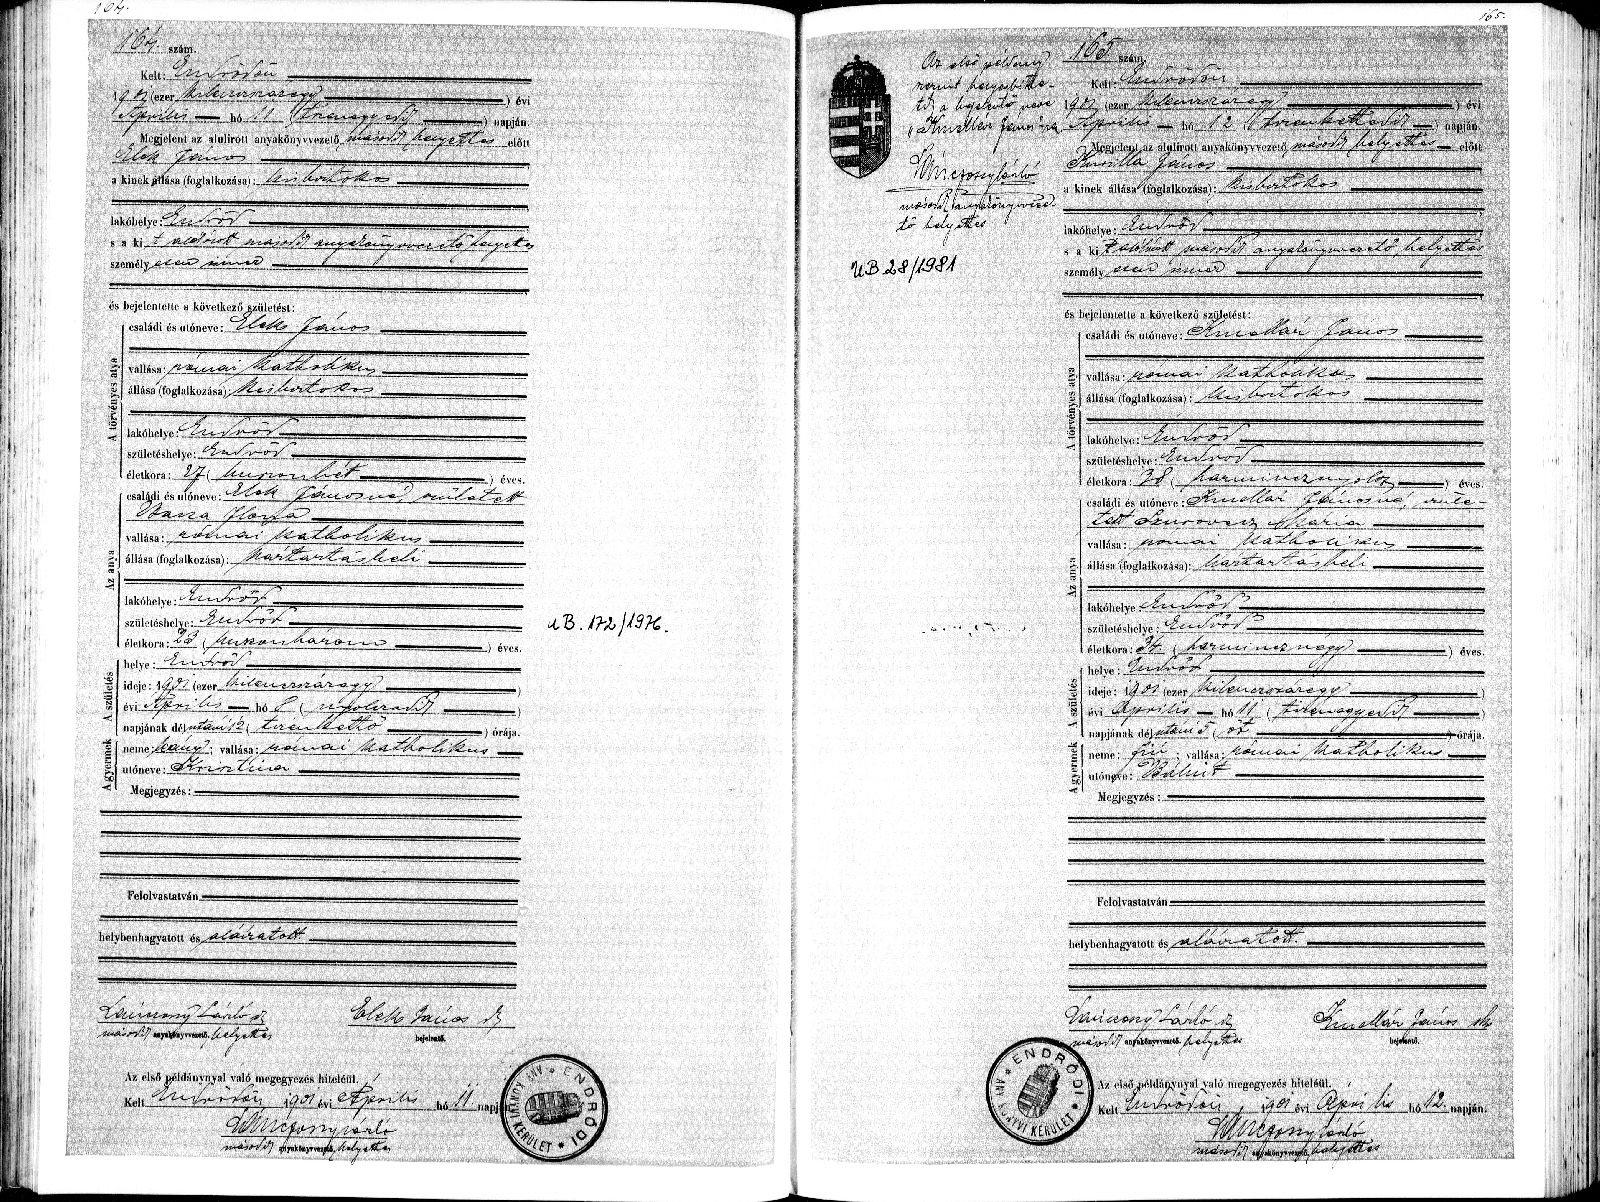 164.
164. szám.
Kelt: Endrődön
1901 (ezer kilencszázegy) évi
Április hó 11 (tizenegyedik) napján.
Megjelent az alulirott anyakönyvvezető második helyettes előtt
Elek János
a kinek állása (foglalkozása): kisbirtokos
lakóhelye: Endrőd
s a ki t aláirott második anyakönyvvezető helyettes
személyesen ismer
és bejelentette a következő születést:
A törvényes atya
családi és utóneve: Elek János
vallása: római katholikus
állása (foglalkozása): kisbirtokos
lakóhelye: Endrőd
születéshelye: Endrőd
életkora: 27 (huszonhét) éves.
Az anya
családi és utóneve: Elek Jánosné, született
Ilona
vallása: római katholikus
állása (foglalkozása): háztartásbeli
lakóhelye: Endrőd
születéshelye: Endrőd
életkora: 23 (huszonhárom) éves.
A születés
helye: Endrőd
ideje: 1901 (ezer kilencszázegy)
évi Április hó 8 (nyolczadik)
napjának délutáni 12 (tizenkettő) órája.
A gyermek
neme: leány; vallása: római katholikus
utóneve: Krisztina
Megjegyzés:
Felolvastatván
helybenhagyatott és aláiratott
László
második anyakönyvvezető helyettes
Elek János
bejelentő.
Az első példánynyal való megegyezés hiteléül.
Kelt Endrődön 1901 évi Április hó 11 napján
László
második anyakönyvvezető helyettes
ENDRŐDI ANYAKÖNYVI KERÜLET
UB. 172/1976.
165.
165 szám.
Az első példány
szerint
a bejelentő neve
"Kmellár János"ra
László
második anyakönyvveze-
tő helyettes
UB 28/1981
Kelt: Endrődön
1901 (ezer kilencszázegy) évi
Április hó 12 (tizenkettedik) napján.
Megjelent az alulirott anyakönyvvezető második helyettes előtt
János
a kinek állása (foglalkozása): kisbirtokos
lakóhelye: Endrőd
s a ki t aláirott második anyakönyvvezető helyettes
személyesen ismer
és bejelentette a következő születést:
A törvényes atya
családi és utóneve: Kmellár János
vallása: római katholikus
állása (foglalkozása): kisbirtokos
lakóhelye: Endrőd
születéshelye: Endrőd
életkora: 38 (harmincznyolcz) éves.
Az anya
családi és utóneve: Kmellár Jánosné, szüle-
tett Szurovecz Mária
vallása: római katholikus
állása (foglalkozása): háztartásbeli
lakóhelye Endrőd
születéshelye: Endrőd
életkora: 34 (harmincznégy) éves.
A születés
helye: Endrőd
ideje: 1901 (ezer kilencszázegy)
évi Április hó 11 (tizenegyedik)
napjának délutáni 5 (öt) órája.
A gyermek
neme: fiú; vallása: római katholikus
utóneve: Bálint
Megjegyzés:
Felolvastatván
helybenhagyatott és aláiratott.
László
második anyakönyvvezető helyettes
Kmellár János
bejelentő.
Az első példánynyal való megegyezés hiteléül.
Kelt Endrődön, 1901 évi Április hó 12 napján.
László
második anyakönyvvezető helyettes
ENDRŐDI ANYAKÖNYVI KERÜLET